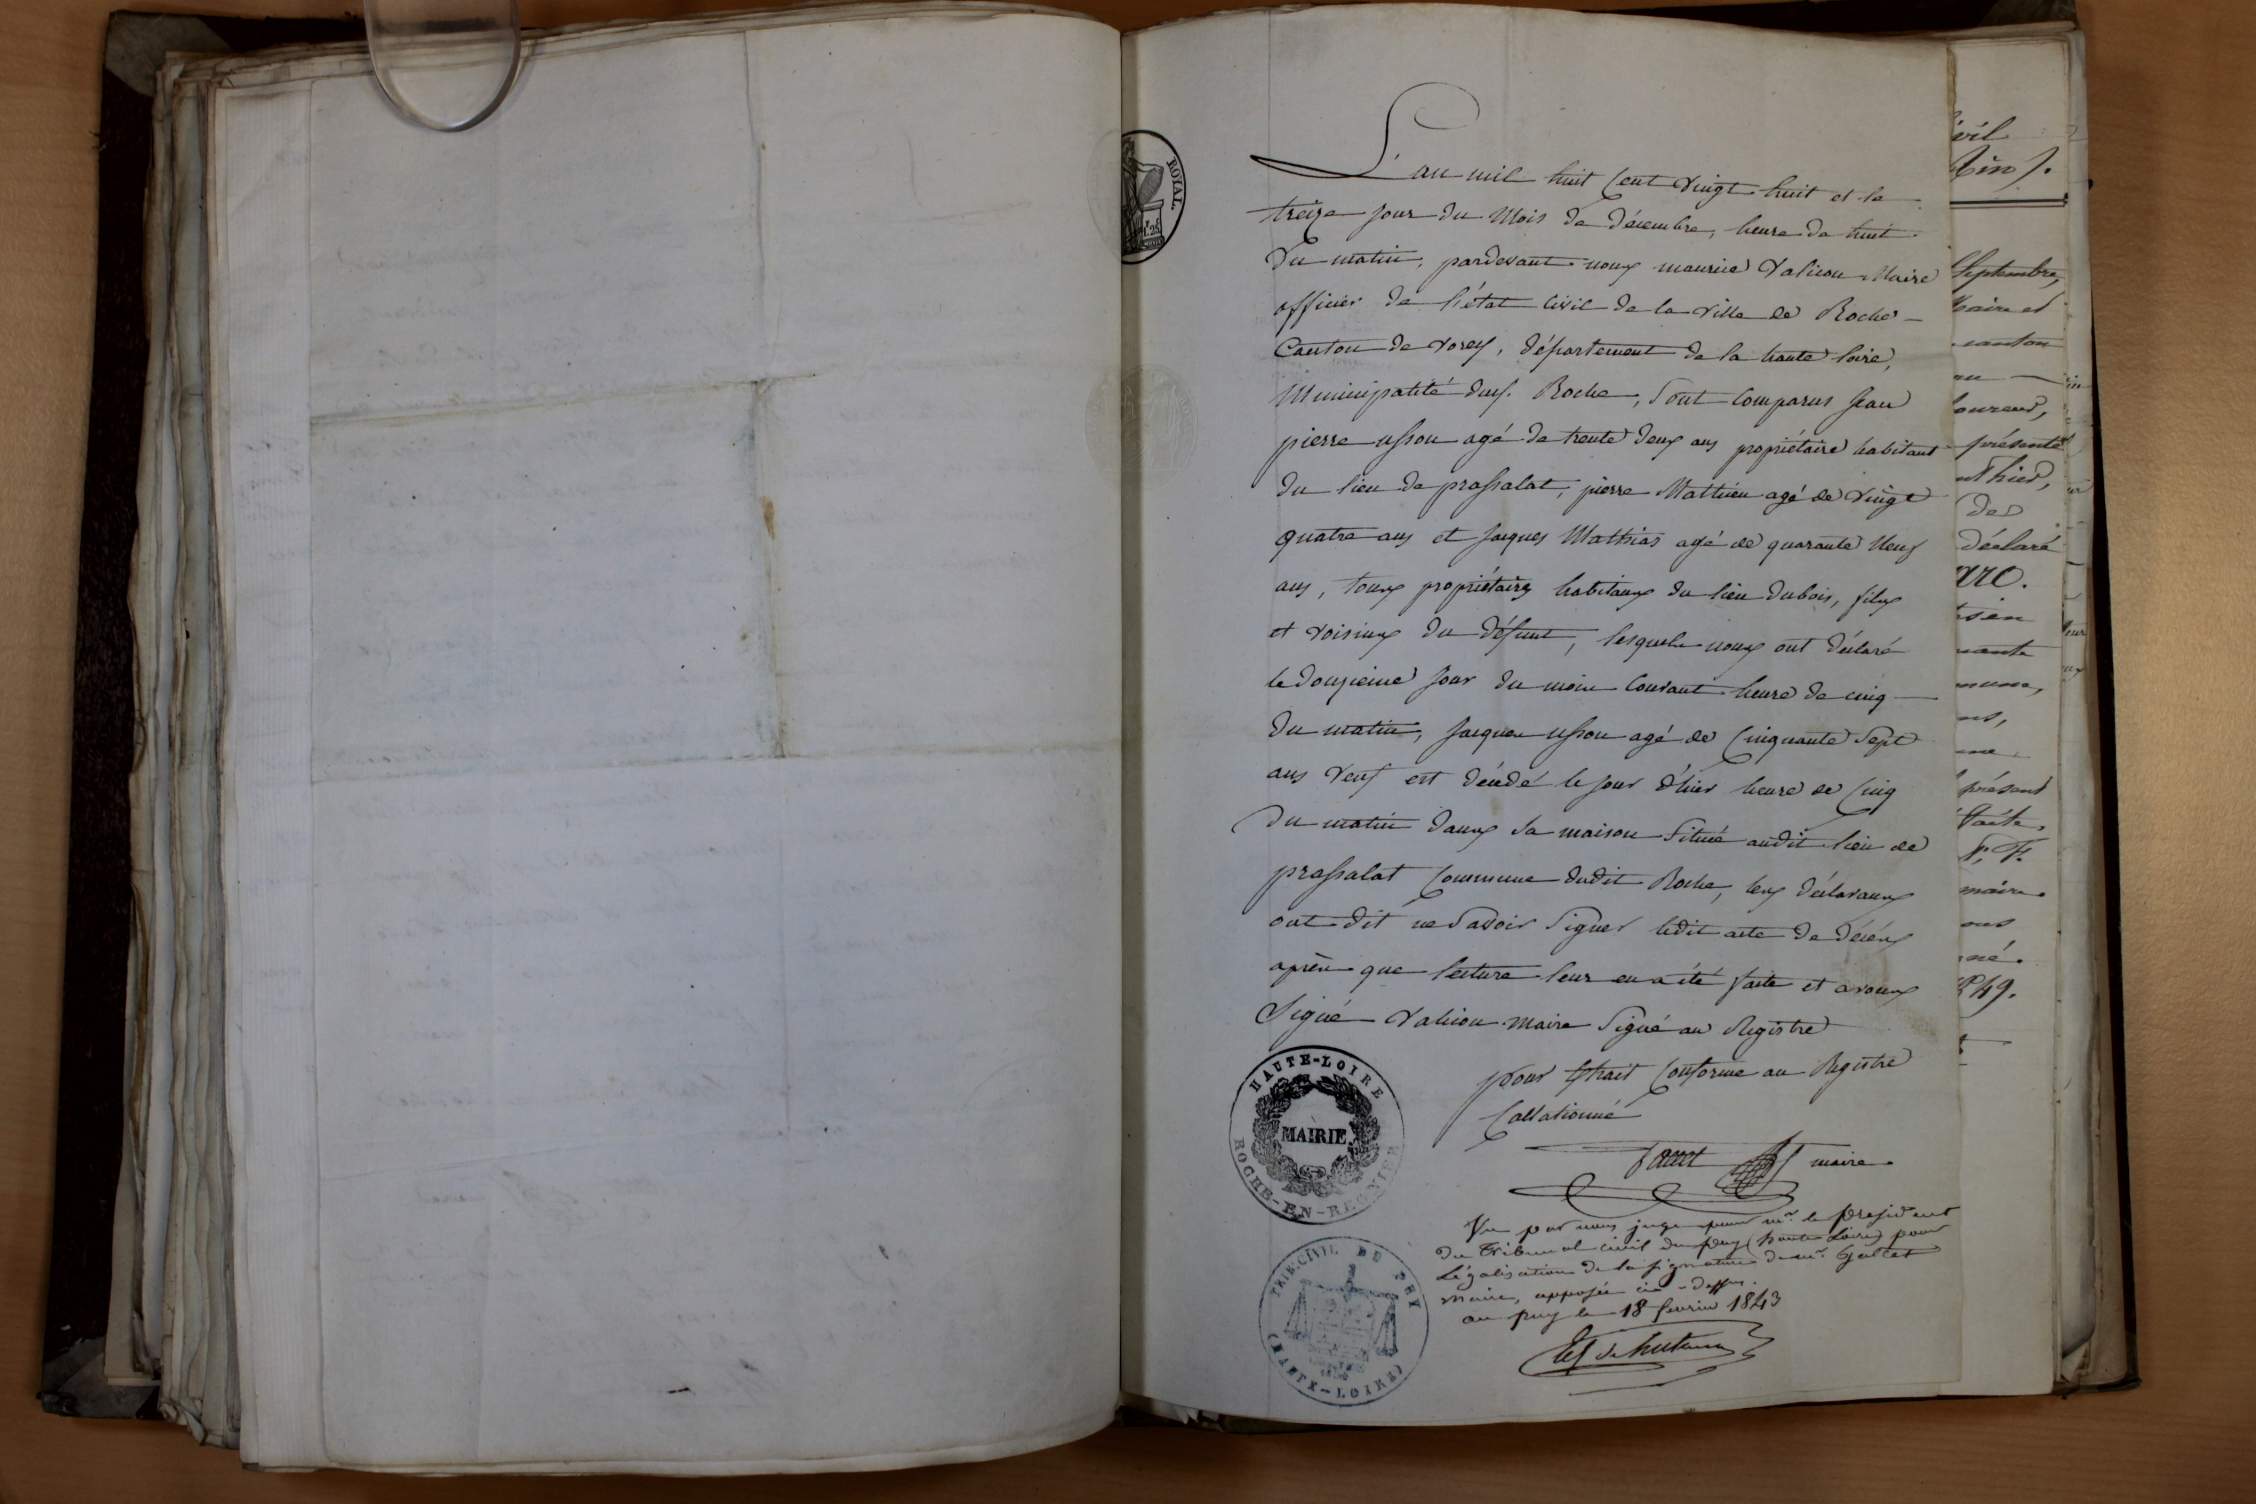 ROYAL
L'an mil huit Cent vingt huit et le
treize jour du Mois de décembre, heure de huit
du matin, pardevant noux maurice Valicon Maire
officier de l'état Civil de la ville de Roche
Canton de vorey, département de la haute loire,
Municipalité dud. Roche, Sont Comparus Jean
pierre usson agé de trente deux ans propriétaire habitant
du lieu de prassalat, pierre Mathieu agé de vingt
quatre ans et Jacques Mathias agé de quarante Neuf
ans, toux propriétaires habitanx du lieu dubois, filx
et voisinx du défunt, lesquels noux ont déclaré
le douzieme jour du mois Courant heure de cinq
du matin, Jacques usson agé de Cinquante Sept
ans veuf est décédé le jour d'hier heure de Cinq
du matin danx sa maison Situé audit lieu de
prassalat Commune dudit Roche, lex déclaranx
ont dit ne Savoir Signer ledit acte de décéx
après que lecture leur en a été faite et avonx
Signé Valicon maire Signé au Registre
pour Extrait Conforme au Registre
Collationné
maire
HAUTE-LOIRE
MAIRIE
ROCHE-EN-REGNIER
Vu par nous juge pour mr. le president
du Tribunal civil du puy (haute Loire) pour
Légalisation de la signature de mr. Gallet
Maire, apposée ci-dessus.
au puy le 18 fevrier 1843
TRIB. CIVIL DU PUY
(HAUTE-LOIRE)
Septembre,
maire et
canton
présenté
de
déclaré
présent
maire
49.